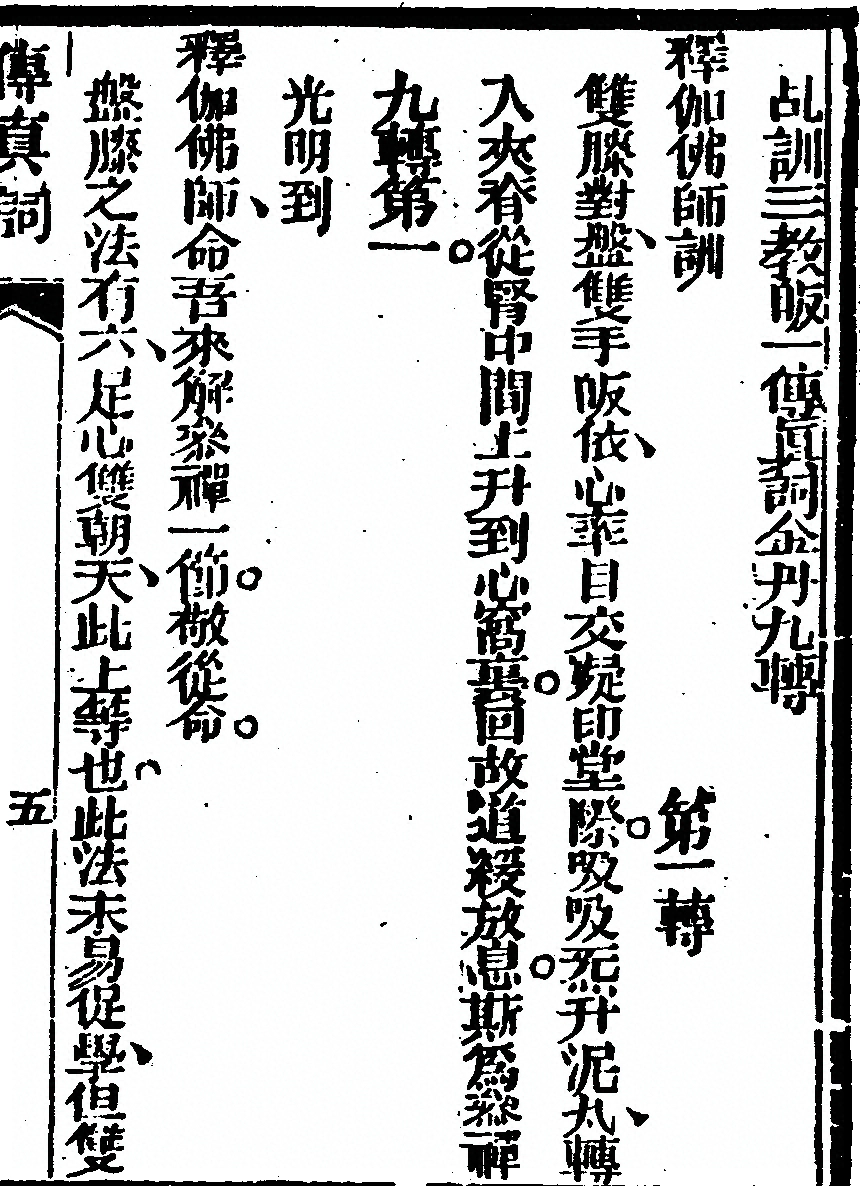 乩訓三教皈一傳眞詞金丹九轉
釋伽佛師訓　第一轉
雙膝對盤、雙手皈依、心莊目交凝印堂際。吸吸炁升泥丸、轉
入夾脊。從腎中間上升到心窩裏。回故道緩放息。斯爲叅禪
九轉第一
光明到
釋伽佛師、命吾來解叅禪一節。敬從命。
盤膝之法有六、足心雙朝天、此上等也。此法未易促學、但雙
傳真詞
五